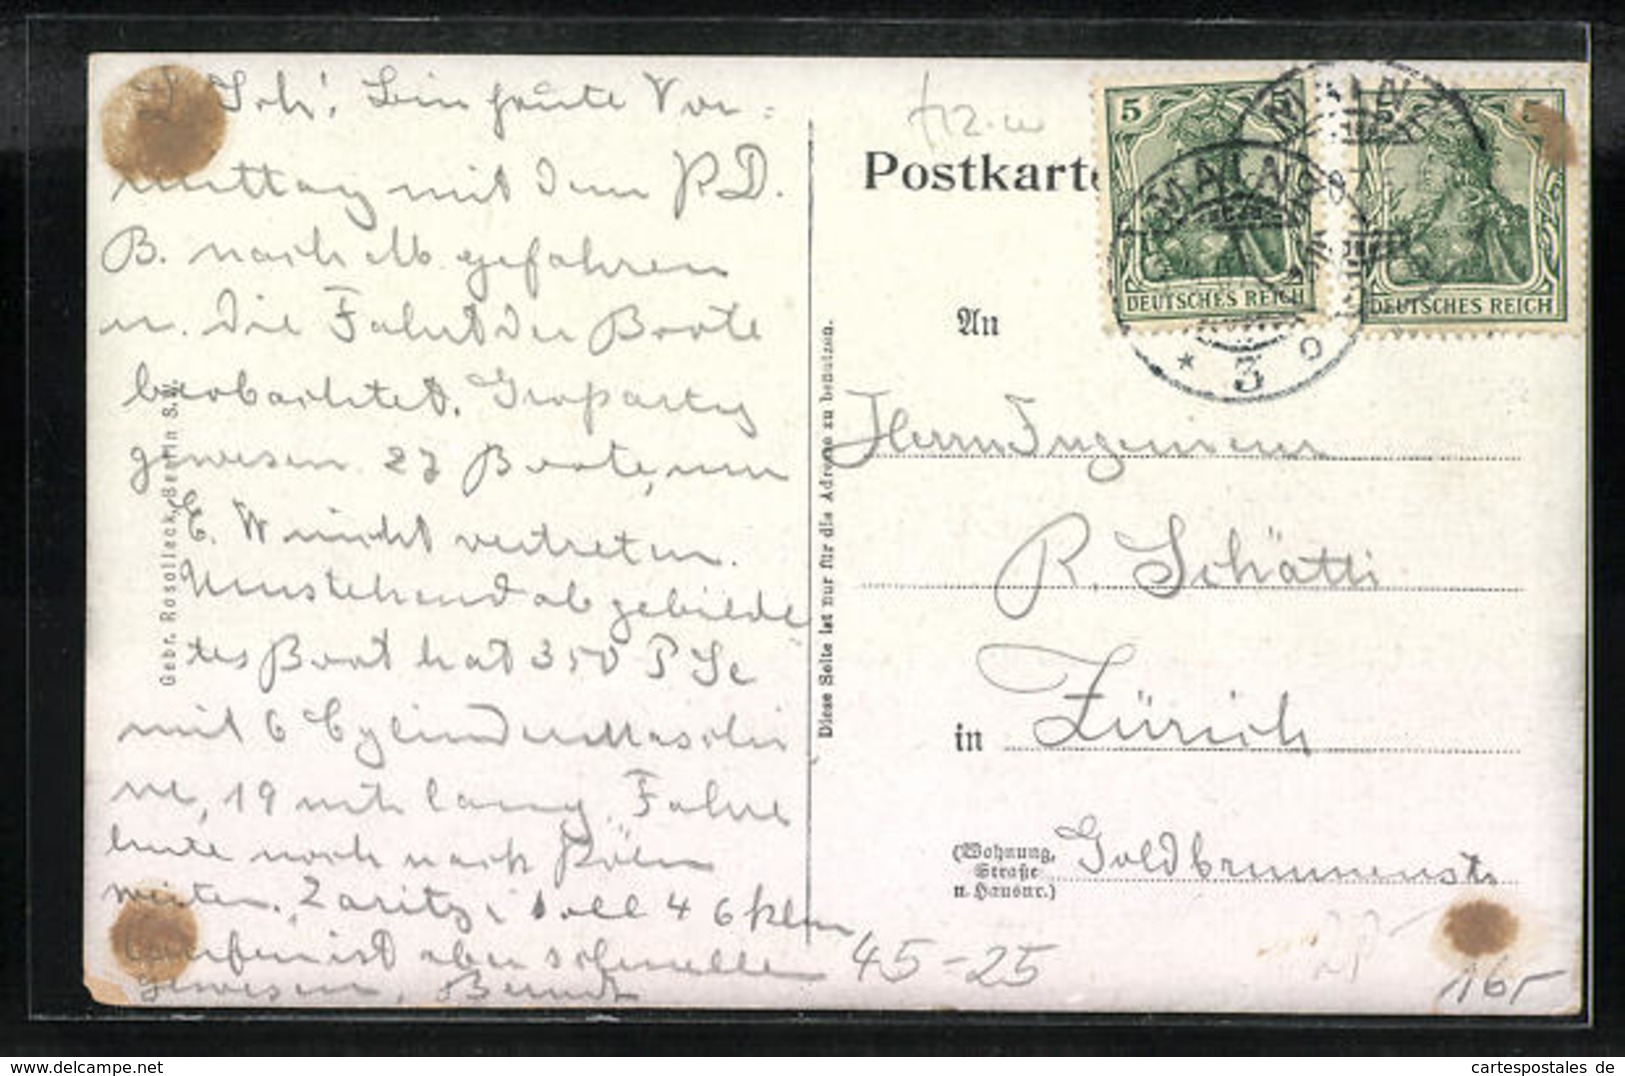 L. Sch! Bin heute Vor-
mittag mit dem P. D.
B. nach M. gefahren
u. die Fahrt der Boote
beobachtet. Großartig
gewesen 27 Boote, nur
E. W nicht vertreten.
Umstehend abgebilde
tes Boot hat 350 PSe
mit 6 Cylinder Maschi
ne, 19 mtr lang. Fahre
heute noch nach Köln
weiter. Zaritza soll 46 klm
laufen ist aber schneller
gewesen, Berndt
Gebr. Rosolleck, Berlin S.W.
Diese Seite ist nur für die Adresse zu benutzen.
Postkarte
5
DEUTSCHES REICH
5
DEUTSCHES REICH
MAINZ
MAINZ
* 3 o
An
Herrn Ingenieur
R. Schätti
in Zürich
(Wohnung, Straße u. Hausnr.)
Goldbrunnenstr
45-25
165
cartespostales de
www.delcampe.net